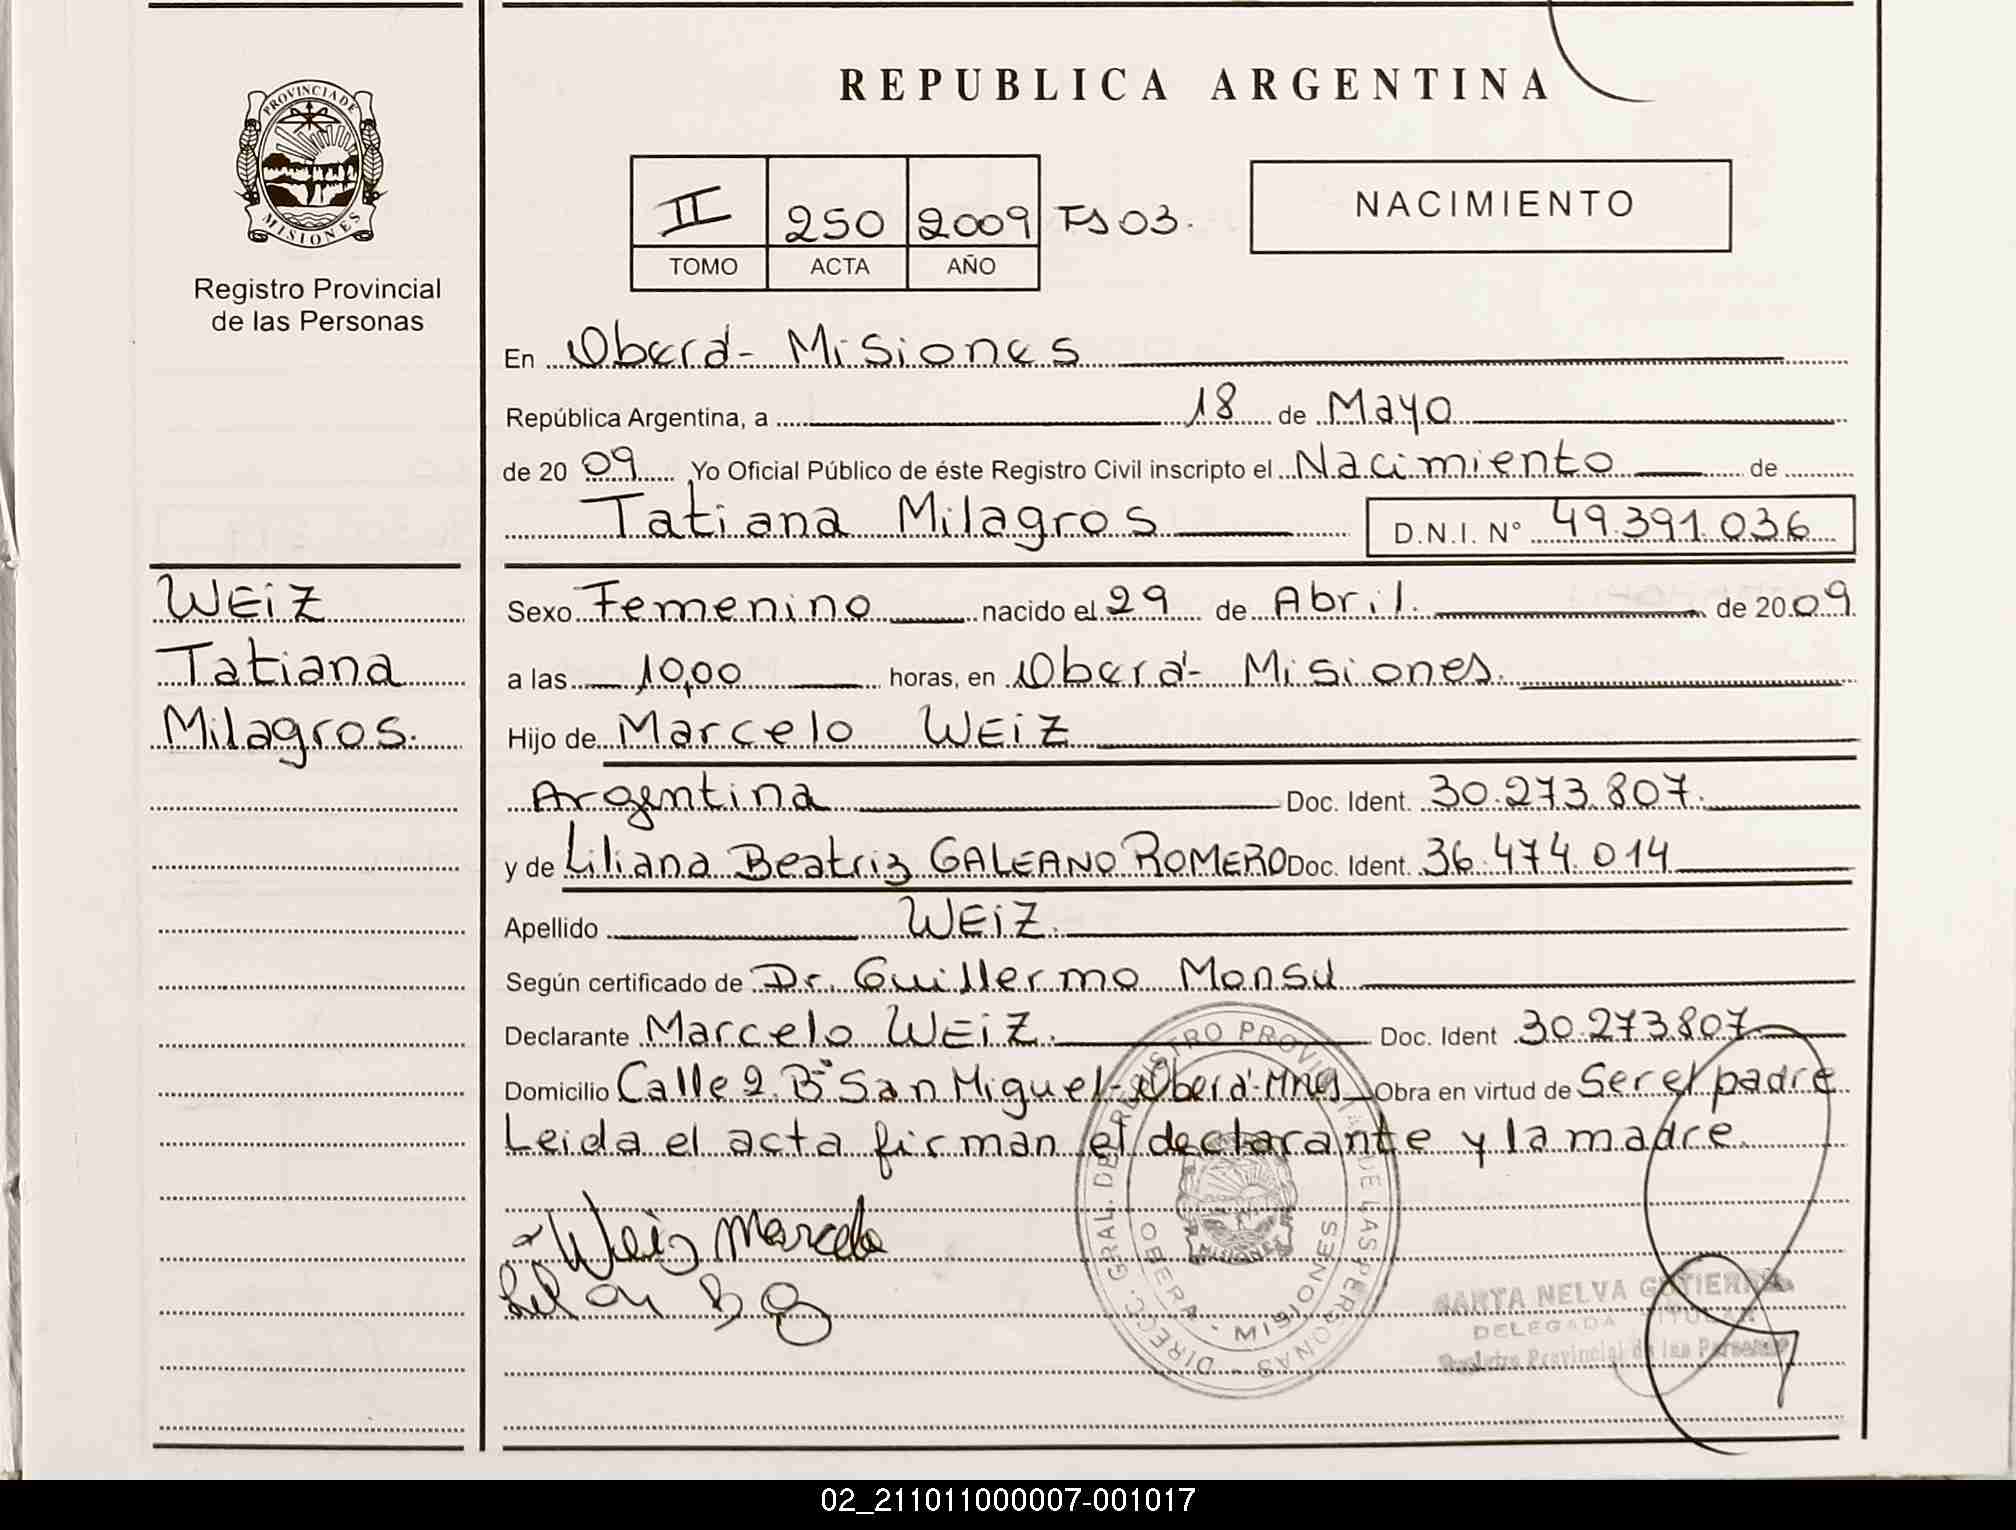 REPUBLICA ARGENTINA
PROVINCIA DE
MISIONES
Registro Provincial
de las Personas
II 250 2009 Fs 03.
TOMO ACTA AÑO
NACIMIENTO
En Oberá - Misiones
República Argentina, a 18 de Mayo
de 20 09 Yo Oficial Público de éste Registro Civil inscripto el Nacimiento de
Tatiana Milagros D.N.I. N° 49.391.036
WEiZ
Tatiana
Milagros.
Sexo Femenino nacido el 29 de Abril. de 20 09
a las 10,00 horas, en Oberá - Misiones.
Hijo de Marcelo WEiZ
Argentina Doc. Ident. 30.273.807.
y de Liliana Beatriz GALEANO ROMERO Doc. Ident. 36.474.014
Apellido WEiZ.
Según certificado de Dr. Guillermo Monsu
Declarante Marcelo WEiZ. Doc. Ident 30.273.807
Domicilio Calle 2. B° San Miguel - Oberá - Mnes Obra en virtud de Ser el padre
Leida el acta firman el declarante y la madre.
Weiz Marcelo
DIRECC. GRAL. DEL REGISTRO PROVINCIAL DE LAS PERSONAS
OBERA - MISIONES
MISIONES
NELVA
DELEGADA TITULAR
Registro Provincial de las Personas
02_211011000007-001017